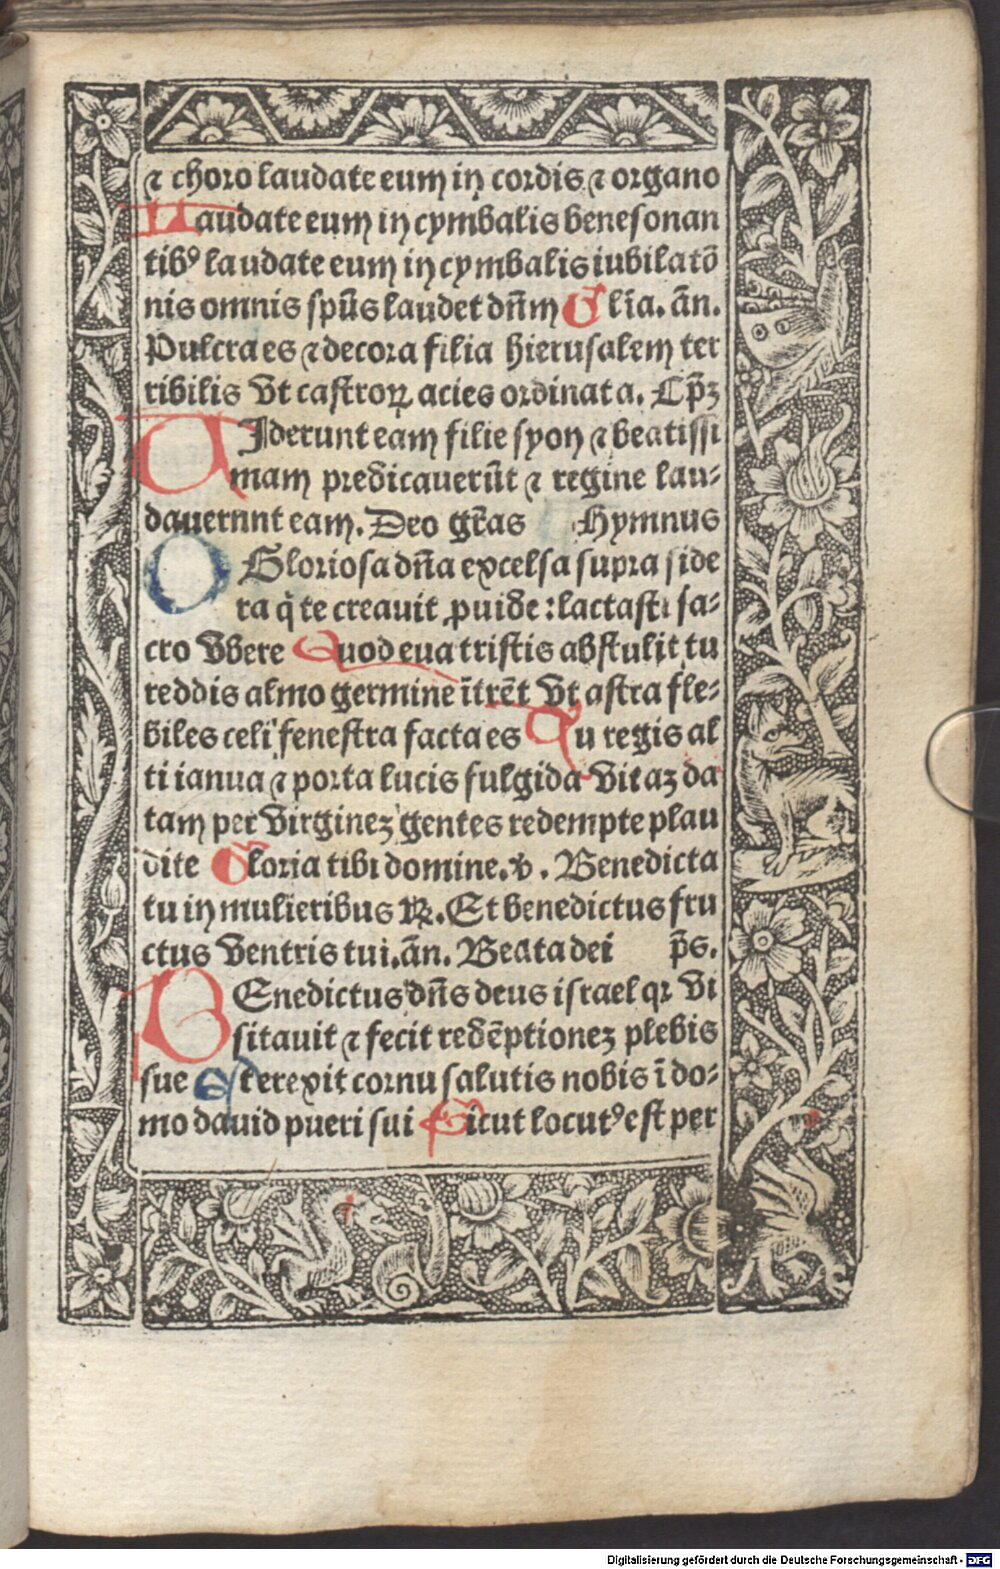 ⁊ choro laudate eum in cordis ⁊ organo
Laudate eum in cymbalis benesonan
tibꝰ laudate eum in cymbalis iubilatō
nis omnis spūs laudet dn̄m Gl̄ia. ān.
Pulcra es ⁊ decora filia hierusalem ter
ribilis vt castroꝝ acies ordinata. Cp̄ꝫ
VIderunt eam filie syon ⁊ beatissi
mam predicauerūt ⁊ regine lau⸗
dauernnt eam. Deo gr̄as Hymnus
O Gloriosa dn̄a excelsa supra side
ra q̇ te creauit ꝓuide : lactasti sa⸗
cro vbere Quod eua tristis abstulit tu
reddis almo germine ītrēt vt astra fle⸗
biles celi fenestra facta es Tu regis al
ti ianua ⁊ porta lucis fulgida vitaꝫ da
tam per virgineꝫ gentes redempte plau
dite Gloria tibi domine. ꝟ. Benedicta
tu in mulieribus ℞. Et benedictus fru
ctus ventris tui. ān. Beata dei p̄s.
BEnedictus dn̄s deus israel qꝛ vi
sitauit ⁊ fecit redēptioneꝫ plebis
sue Et erexit cornu salutis nobis ī do⸗
mo dauid pueri sui Sicut locutꝰ est per
Digitalisierung gefördert durch die Deutsche Forschungsgemeinschaft - DFG